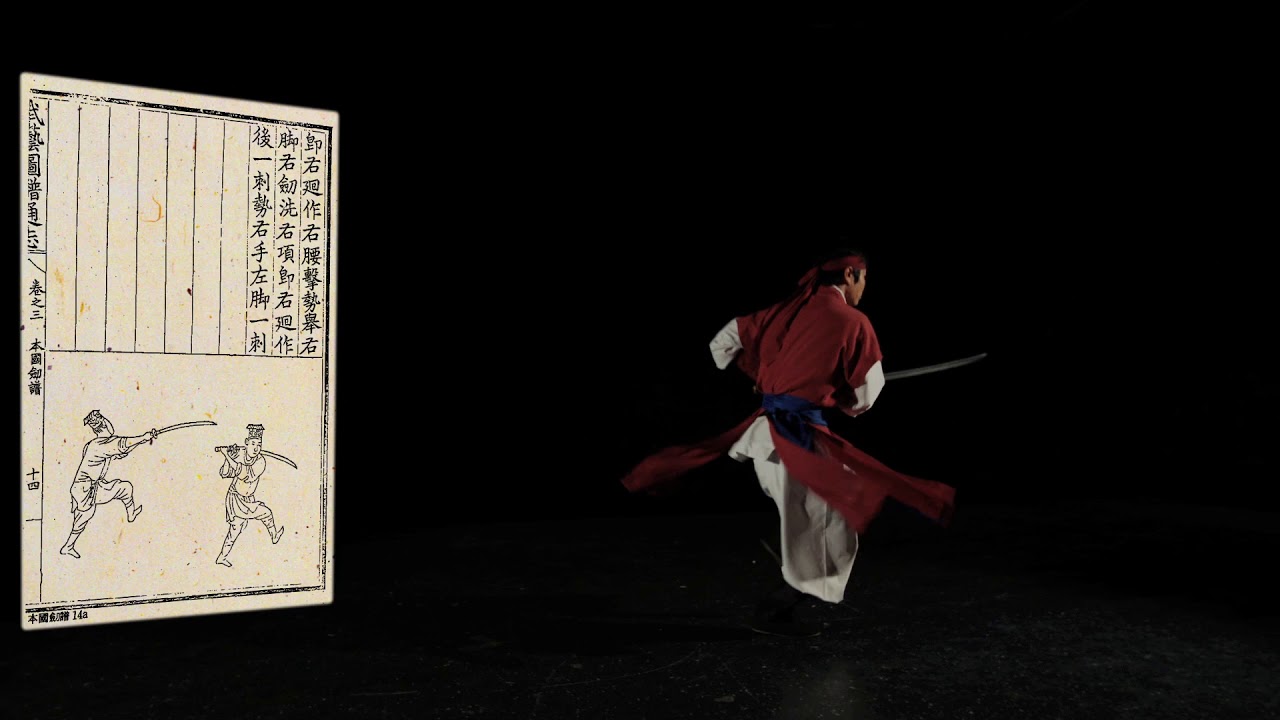 卽右廻作右腰擊勢舉右
脚右劒洗右項卽右廻作
後一刺勢右手左脚一刺
武藝圖譜通志
卷之三 本國劒譜
十四
本國劒譜 14a